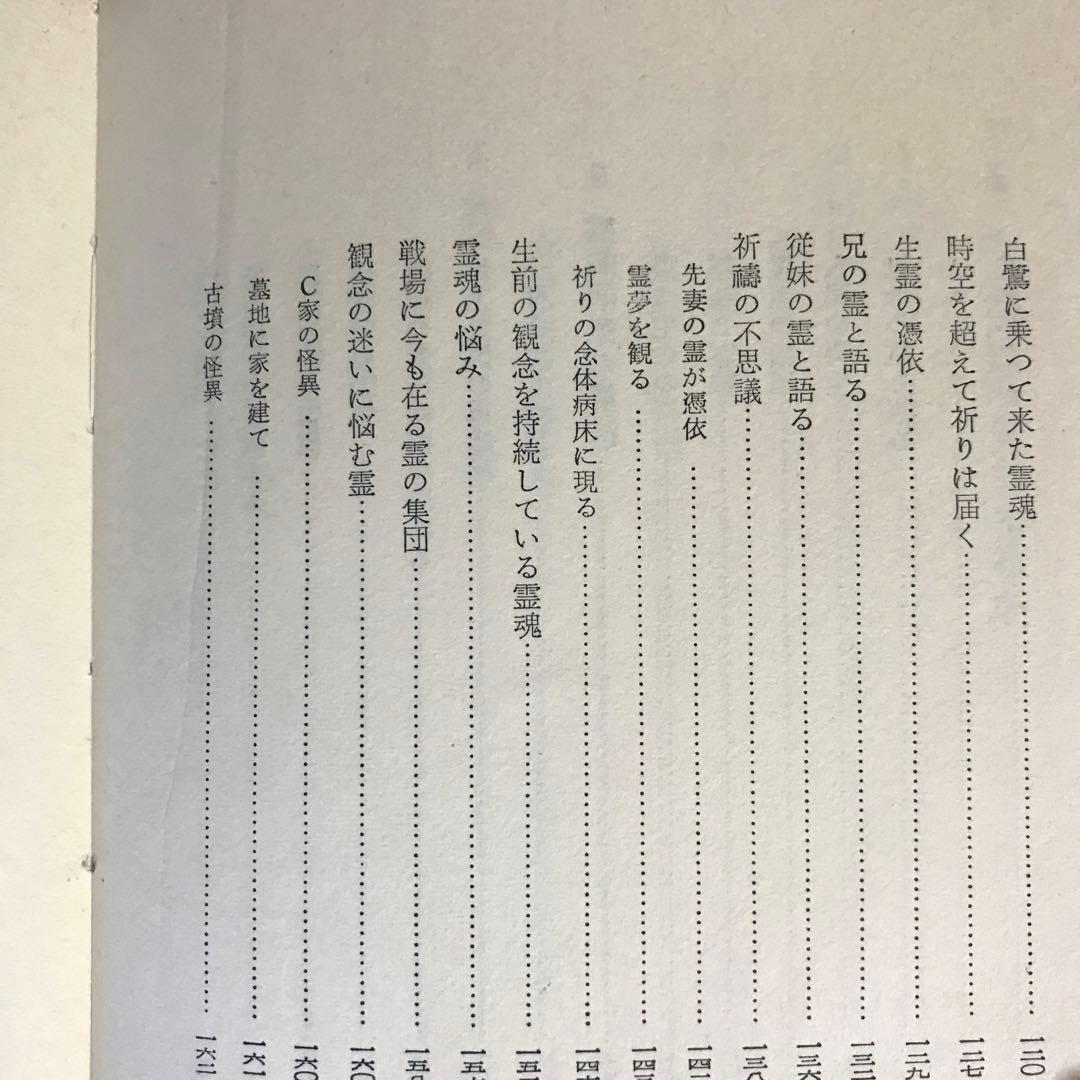 白鷺に乗つて来た霊魂…………一二〇
時空を超えて祈りは届く…………一二七
生霊の憑依…………一二九
兄の霊と語る…………一三二
従妹の霊と語る…………一三六
祈禱の不思議…………一三八
先妻の霊が憑依…………一四二
霊夢を観る…………一四
祈りの念体病床に現る…………一四
生前の観念を持続している霊魂…………一五
霊魂の悩み…………一五
戦場に今も在る霊の集団…………一五八
観念の迷いに悩む霊…………一六〇
C家の怪異…………一六〇
墓地に家を建て…………一六一
古墳の怪異…………一六二